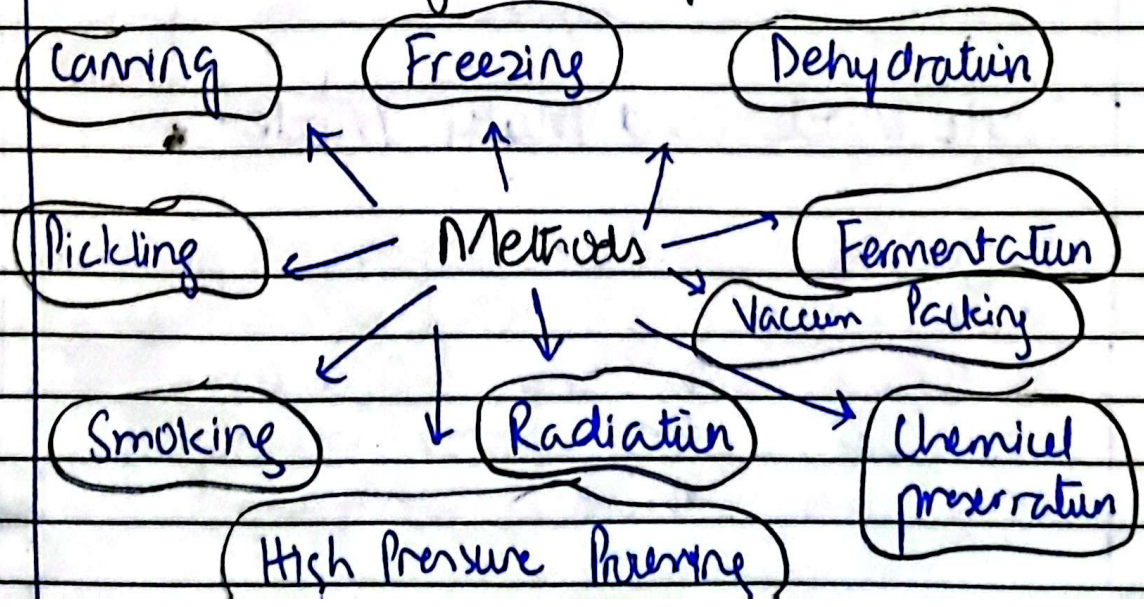 Canning Freezing Dehydration
Pickling Methods Fermentation
Vaccum Packing
Smoking Radiation Chemical
preservation
High Pressure Processing